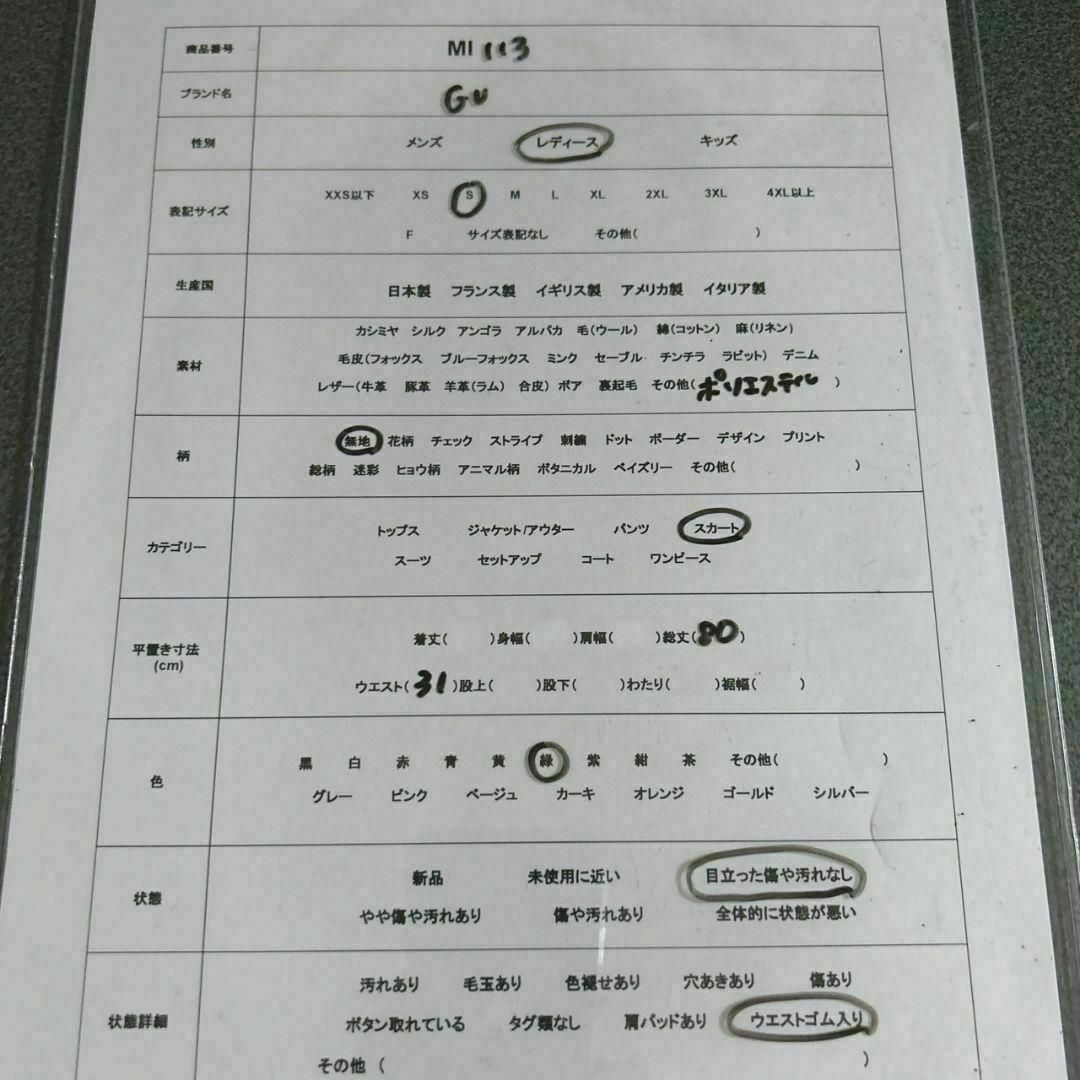 商品番号 MI 113
ブランド名 GU
性別 メンズ レディース キッズ
XXS以下 XS S M L XL 2XL 3XL 4XL以上
表記サイズ
F サイズ表記なし その他( )
生産国 日本製 フランス製 イギリス製 アメリカ製 イタリア製
カシミヤ シルク アンゴラ アルパカ 毛(ウール) 綿(コットン) 麻(リネン)
素材 毛皮(フォックス ブルーフォックス ミンク セーブル チンチラ ラビット) デニム
レザー(牛革 豚革 羊革(ラム) 合皮) ボア 裏起毛 その他(ポリエステル )
柄 無地 花柄 チェック ストライプ 刺繍 ドット ボーダー デザイン プリント
総柄 迷彩 ヒョウ柄 アニマル柄 ボタニカル ペイズリー その他( )
トップス ジャケット/アウター パンツ スカート
カテゴリー
スーツ セットアップ コート ワンピース
着丈( )身幅( )肩幅( )総丈(80)
平置き寸法
(cm)
ウエスト(31)股上( )股下( )わたり( )裾幅( )
黒 白 赤 青 黄 緑 紫 紺 茶 その他( )
色
グレー ピンク ベージュ カーキ オレンジ ゴールド シルバー
新品 未使用に近い 目立った傷や汚れなし
状態
やや傷や汚れあり 傷や汚れあり 全体的に状態が悪い
汚れあり 毛玉あり 色褪せあり 穴あきあり 傷あり
状態詳細 ボタン取れている タグ類なし 肩パッドあり ウエストゴム入り
その他 ( )